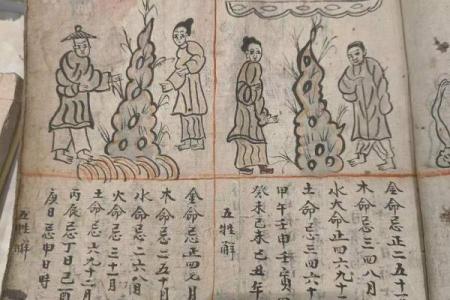 金命忌正二五十
木命忌三四八月
水火命正四六九十
土命忌三四六十
甲午壬申壬寅
癸未己未己丑年
五牲解
金命忌正四七月
木命忌二五十月
水命忌二六八月
火命忌二十月
土命忌六九十二月
丙辰忌丁日己酉
庚日忌申日時
五牲解